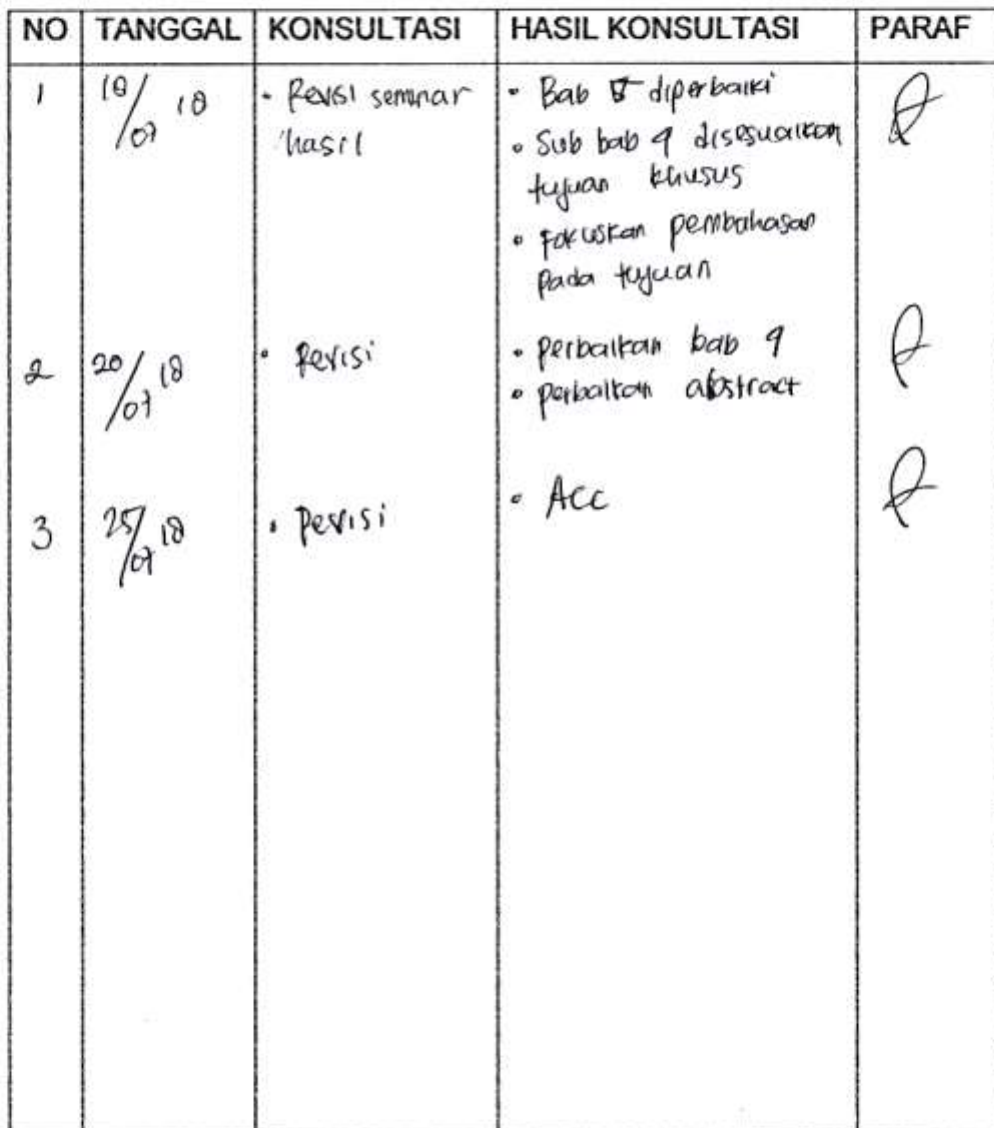 NO TANGGAL KONSULTASI HASIL KONSULTASI PARAF
1 18/07 18 • Revisi seminar • Bab 5 diperbaiki
hasil • Sub bab 4 disesuaikan
tujuan khusus
• Fokuskan pembahasan
pada tujuan
2 20/07 18 • Revisi • perbaikan bab 4
• perbaikan abstract
3 25/07 18 • Revisi • Acc